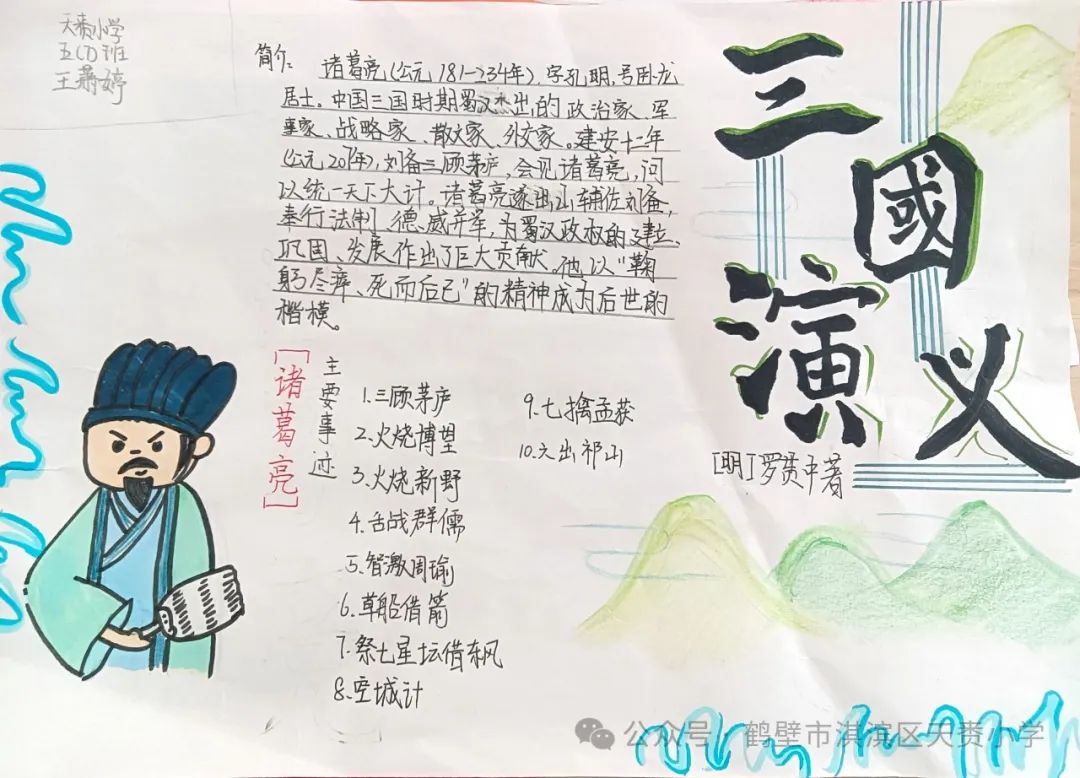 天赉小学
五(1)班
王萧婷
简介:
诸葛亮(公元181-234年),字孔明,号卧龙
居士。中国三国时期蜀汉杰出的政治家、军
事家、战略家、散文家、外交家。建安十二年
(公元207年),刘备三顾茅庐,会见诸葛亮,问
以统一天下大计。诸葛亮遂出山辅佐刘备,
奉行法制、德、威并军,为蜀汉政权的建立、
巩固、发展作出了巨大贡献。他以“鞠
躬尽瘁、死而后已”的精神成为后世的
楷模。
[诸葛亮]
主要事迹
1.三顾茅庐
2.火烧博望
3.火烧新野
4.舌战群儒
5.智激周瑜
6.草船借箭
7.祭七星坛借东风
8.空城计
9.七擒孟获
10.六出祁山
三國
演义
[明]罗贯中著
公众号·鹤壁市淇滨区天赉小学